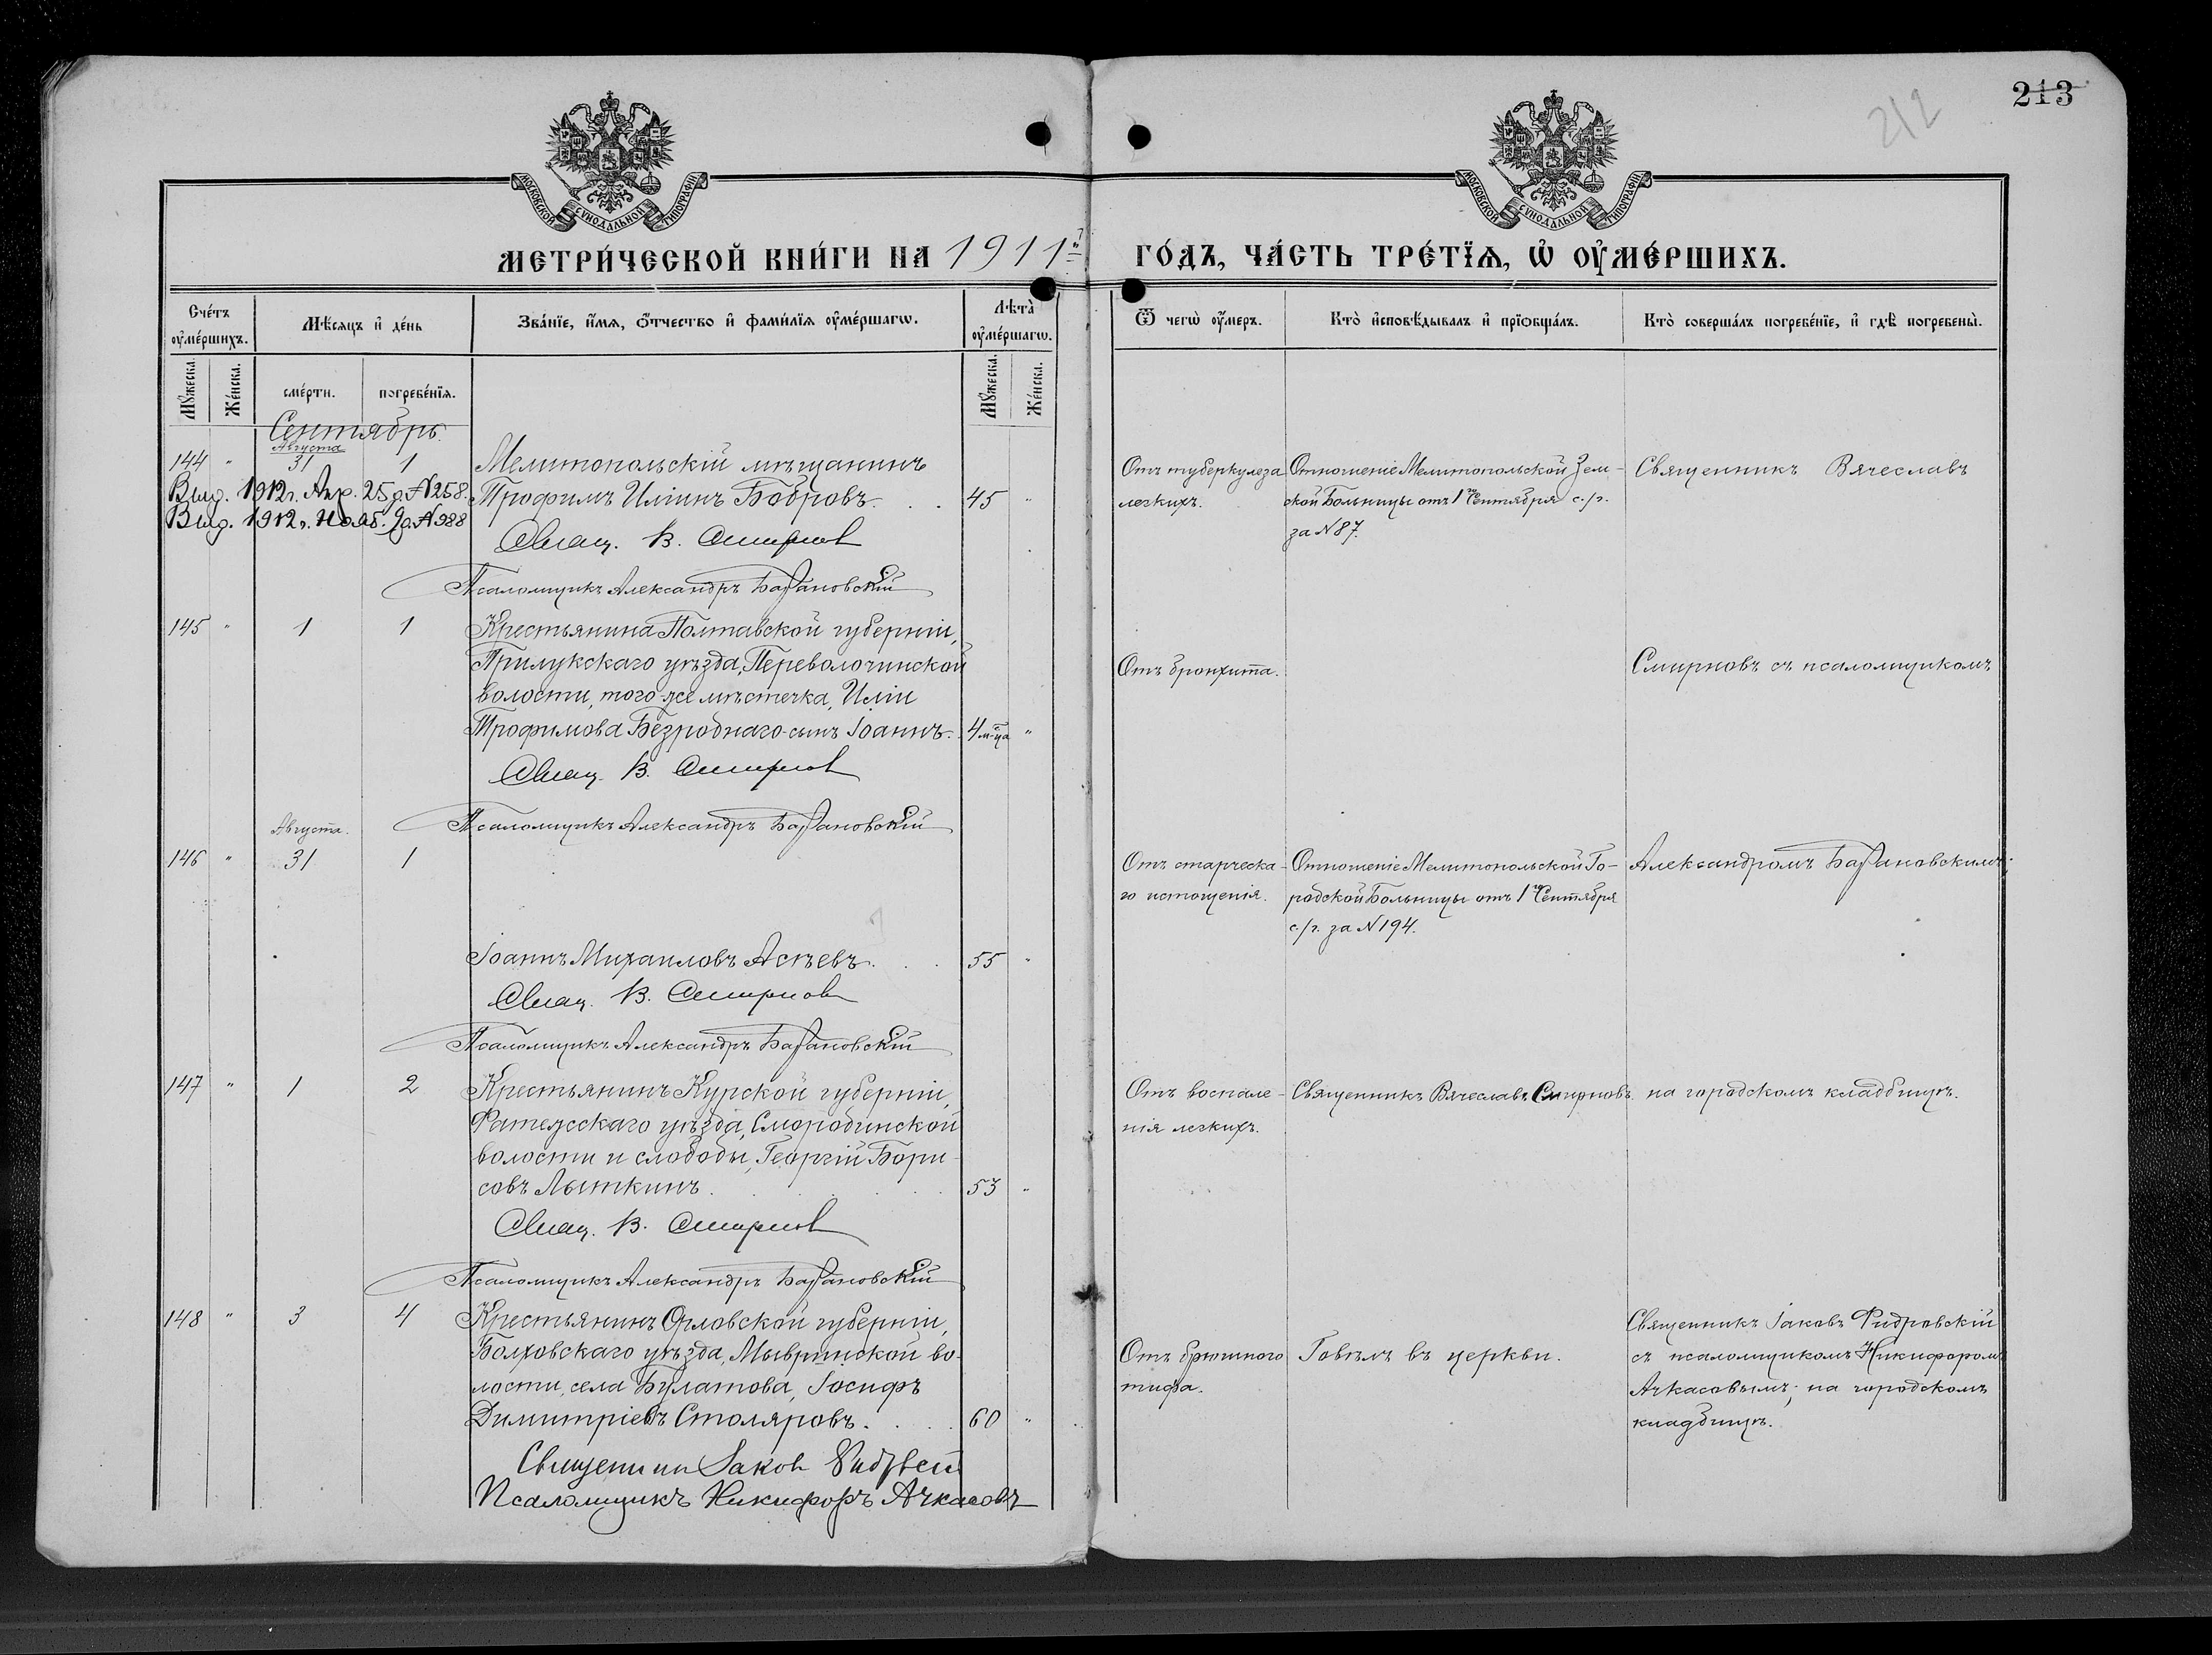 213
212
МОСКОВСКОЙ СѴНОДАЛЬНОЙ ТИПОГРАФІИ
МОСКОВСКОЙ СѴНОДАЛЬНОЙ ТИПОГРАФІИ
МЕТРИ́ЧЕСКОЙ КНИ́ГИ НА 1911 й ГО́ДЪ, ЧА́СТЬ ТРЕ́ТЇѦ, Ѡ҆ ОУ҆МЕ́РШИХЪ.
Сче́тъ оу҆ме́ршихъ.
Мѣ́сяцъ и҆ де́нь
Зва́нїе, и҆́мѧ, ѻ҆́тчество и҆ фами́лїѧ оу҆ме́ршагѡ.
Лѣта̀ оу҆ме́ршагѡ.
Ѿ чегѡ̀ оу҆́меръ.
Кто̀ и҆сповѣ́дывалъ и҆ прїѡбща́лъ.
Кто̀ соверша́лъ погребе́нїе, и҆ гдѣ̀ погребены̀.
Мꙋ́жеска.
Же́нска.
сме́рти.
погребе́нїѧ.
Мꙋ́жеска.
Же́нска.
Сентябрь.
Августа
144 " 31 1 Мелитопольскій мѣщанинъ
Выд. 1912 г. Апр. 25 д. № 258. Трофимъ Иліинъ Бобровъ. . . 45 "
Выд. 1912 г. Нояб. 9 д. № 988
Свящ. В. Смирнов
Псаломщикъ Александръ Барановскій
Отъ туберкулеза
легкихъ.
Отношеніе Мелитопольской Зем-
ской Больницы отъ 1го Сентября с./г.
за № 87.
Священникъ Вячеславъ
145 " 1 1 Крестьянина Полтавской губерніи,
Прилукскаго уѣзда, Переволочинской
волости, того-же мѣстечка, Иліи
Трофимова Безроднаго-сынъ Іоаннъ. 4 м-ца "
Свящ. В. Смирнов
Псаломщикъ Александръ Барановскій
Отъ бронхита.
Смирновъ съ псаломщикомъ
Августа.
146 " 31 1
Іоаннъ Михаиловъ Асѣевъ. . . 55 "
Свящ. В. Смирнов
Псаломщикъ Александръ Барановскій
Отъ старческа-
го истощенія.
Отношеніе Мелитопольской Го-
родской Больницы отъ 1го Сентября
с./г. за № 194.
Александромъ Барановскимъ;
147 " 1 2 Крестьянинъ Курской губерніи,
Фатежскаго уѣзда, Смородинской
волости и слободы, Георгій Бори-
совъ Лыткинъ. 53 "
Свящ. В. Смирнов
Псаломщикъ Александръ Барановскій
Отъ воспале-
нія легкихъ.
Священникъ Вячеславъ Смирновъ.
на городскомъ кладбищѣ.
148 " 3 4 Крестьянинъ Орловской губерніи,
Болховскаго уѣзда, во-
лости, села Булатова, Іосифъ
Димитріевъ Столяровъ. . . . 60 "
Священник Іаков
Псаломщикъ Никифоръ Ачкасовъ
Отъ брюшного
тифа.
Говѣлъ въ церкви.
Священникъ Іаковъ Фидровскій
съ псаломщикомъ Никифоромъ
Ачкасовымъ; на городскомъ
кладбищѣ.